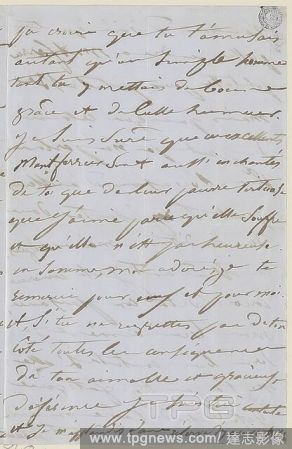 j'ai cru que tu t'amusais
autant qu'un simple homme
tant tu y mettais de bonne
grâce et de belle humeur.
Je suis sûre que ces excellents
sont aussi enchantés
de toi que de leur pauvre
que j'aime parce qu'elle souffre
et qu'elle n'est pas heureuse
en somme mon adoré je te
remercie pour eux et pour moi.
et si tu ne regrettes pas de ton
côté toutes les conséquences
de ton aimable et gracieuse
je
et je
TPG
www.tpgnews.com 達志影像